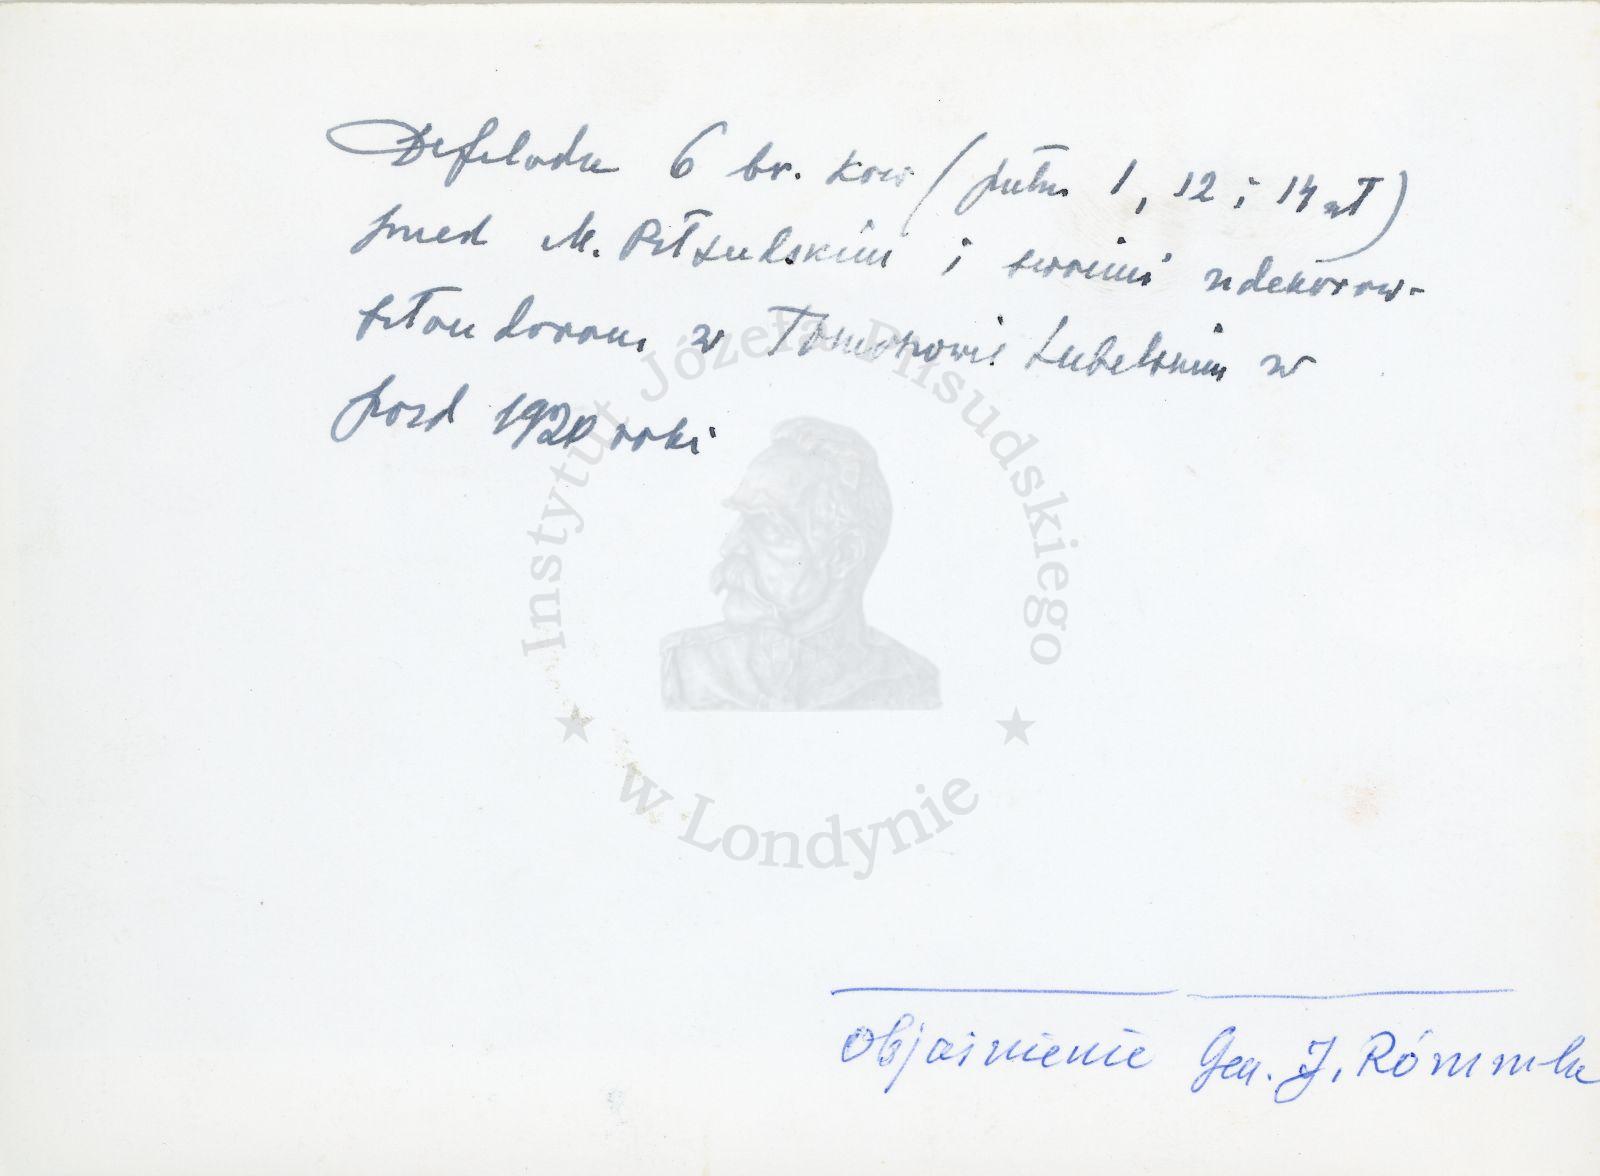 Defilada 6 br. kaw (pułki 1, 12 i 14 uł)
przed M. Piłsudskim i swoimi udekorow-
sztandarami w Tomaszowie Lubelskim w
paźd 1920 roku
Instytut Józefa Piłsudskiego
w Londynie
Objaśnienie Gen. J. Rómmla